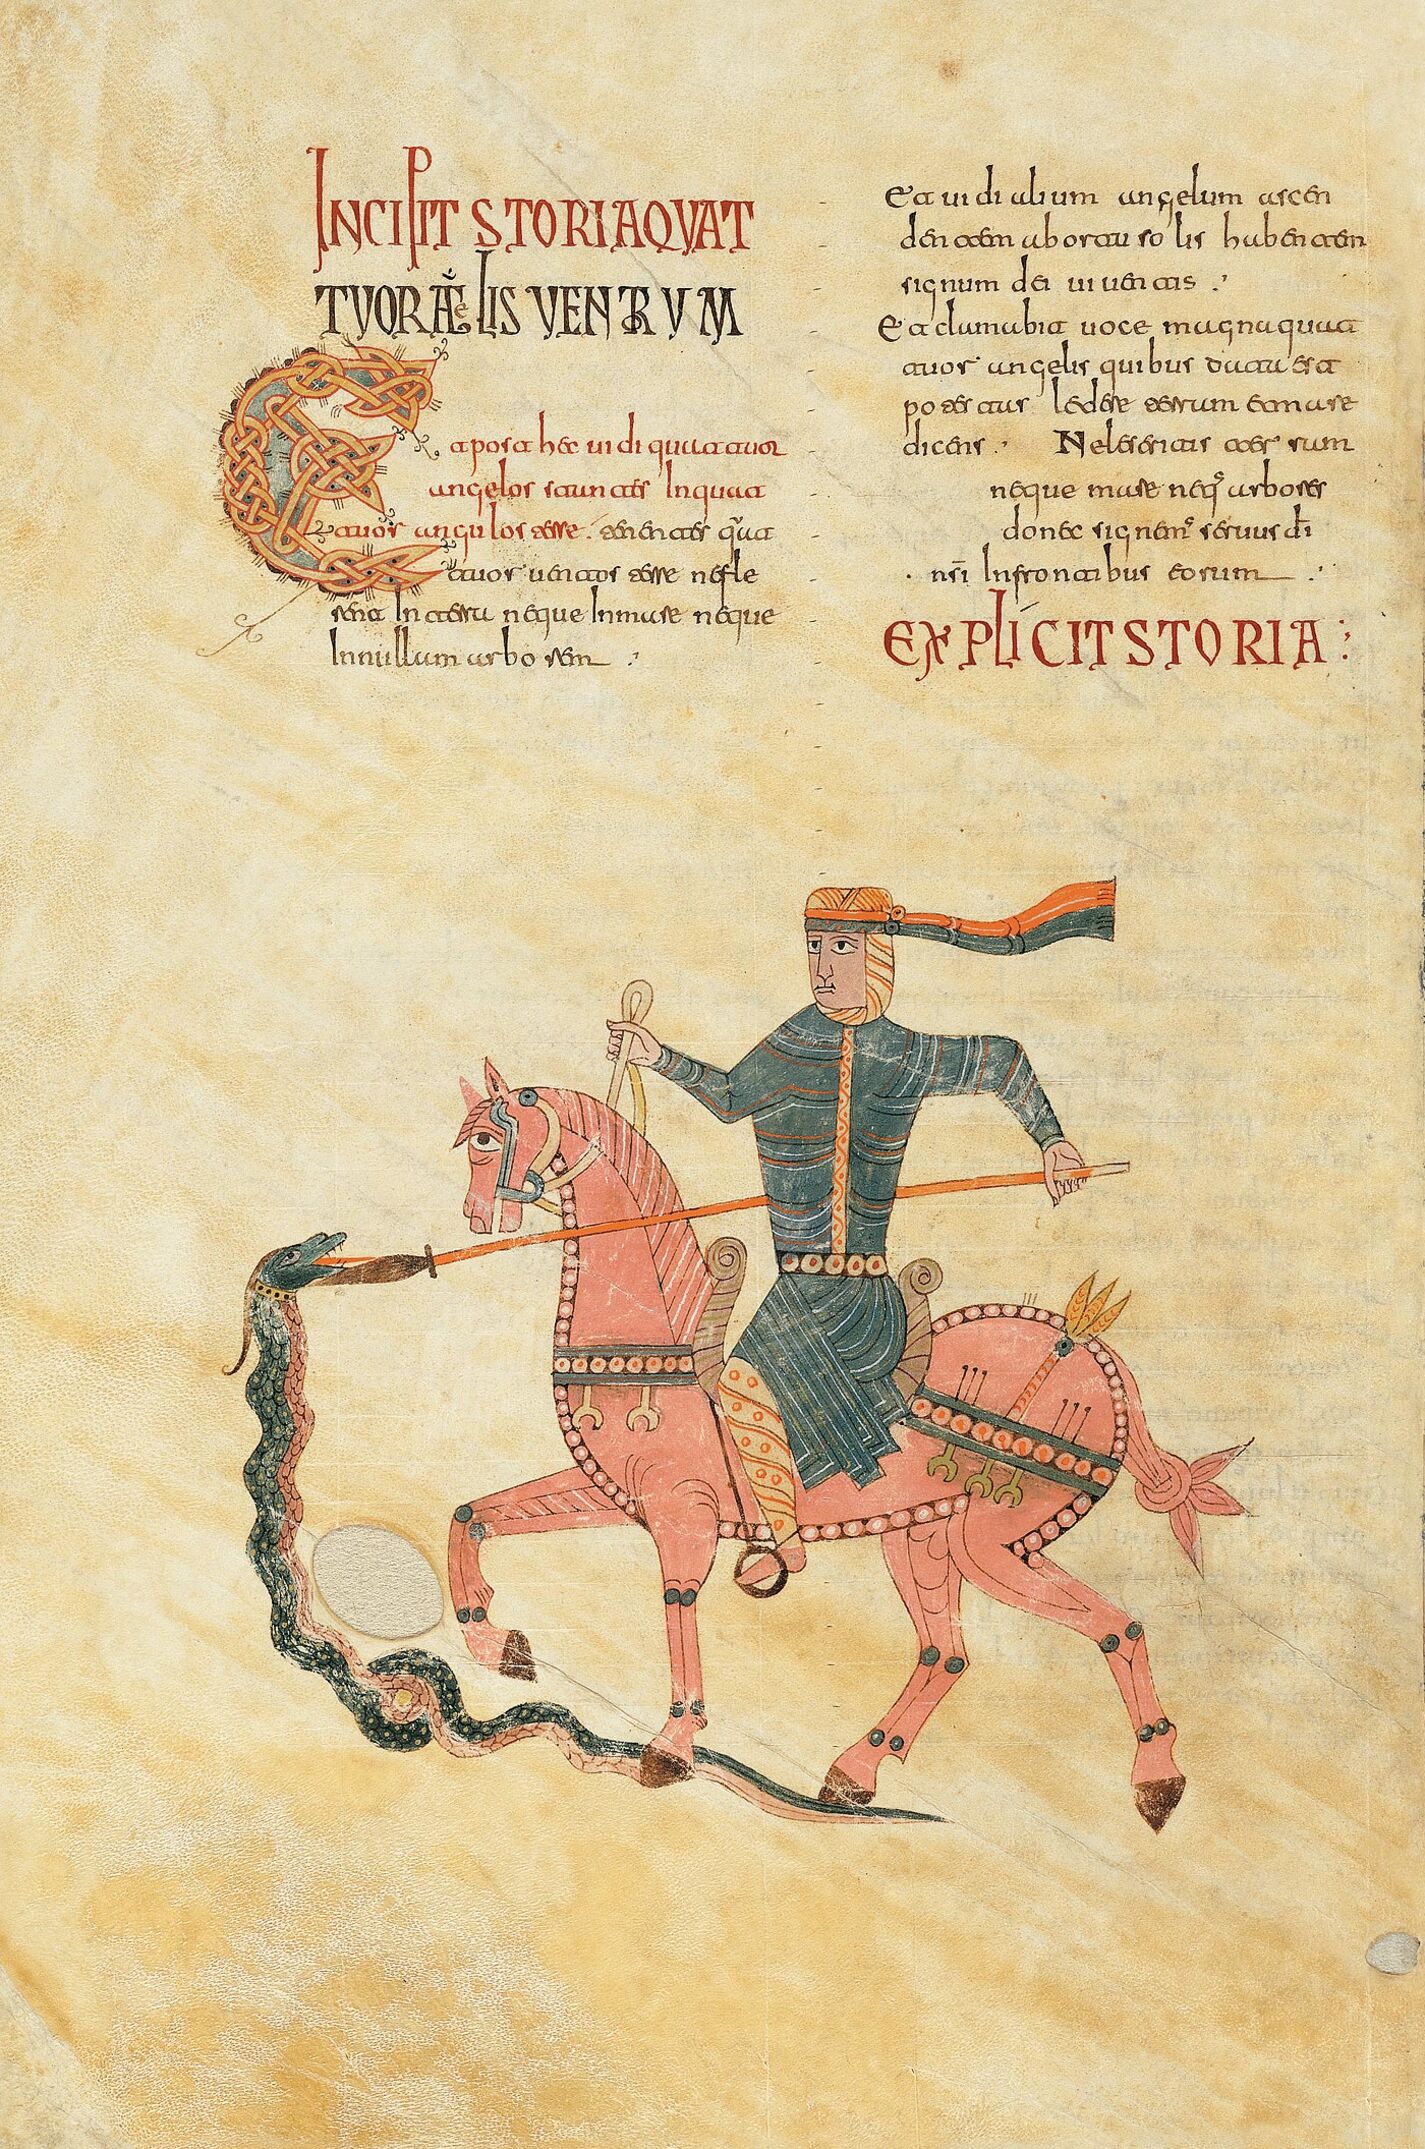 INCIPIT STORIA QVAT
TVOR ÆLIS VENTRVM
Et post hec uidi quattuor
angelos stantes In quat
tuor angulos terre. tenentes qua
tuor uentos terre ne fle
rent In terra neque In mare neque
In ullam arborem
Et uidi alium angelum ascen
dentem ab ortu solis habentem
signum dei uiuentis
Et clamabit uoce magna quat
tuor angelis quibus datu est
potestas ledere terram et mare
dicens Ne leseritis terram
neque mare neq arbores
donec signem seruus di
nsi In frontibus eorum
EXPLICIT STORIA